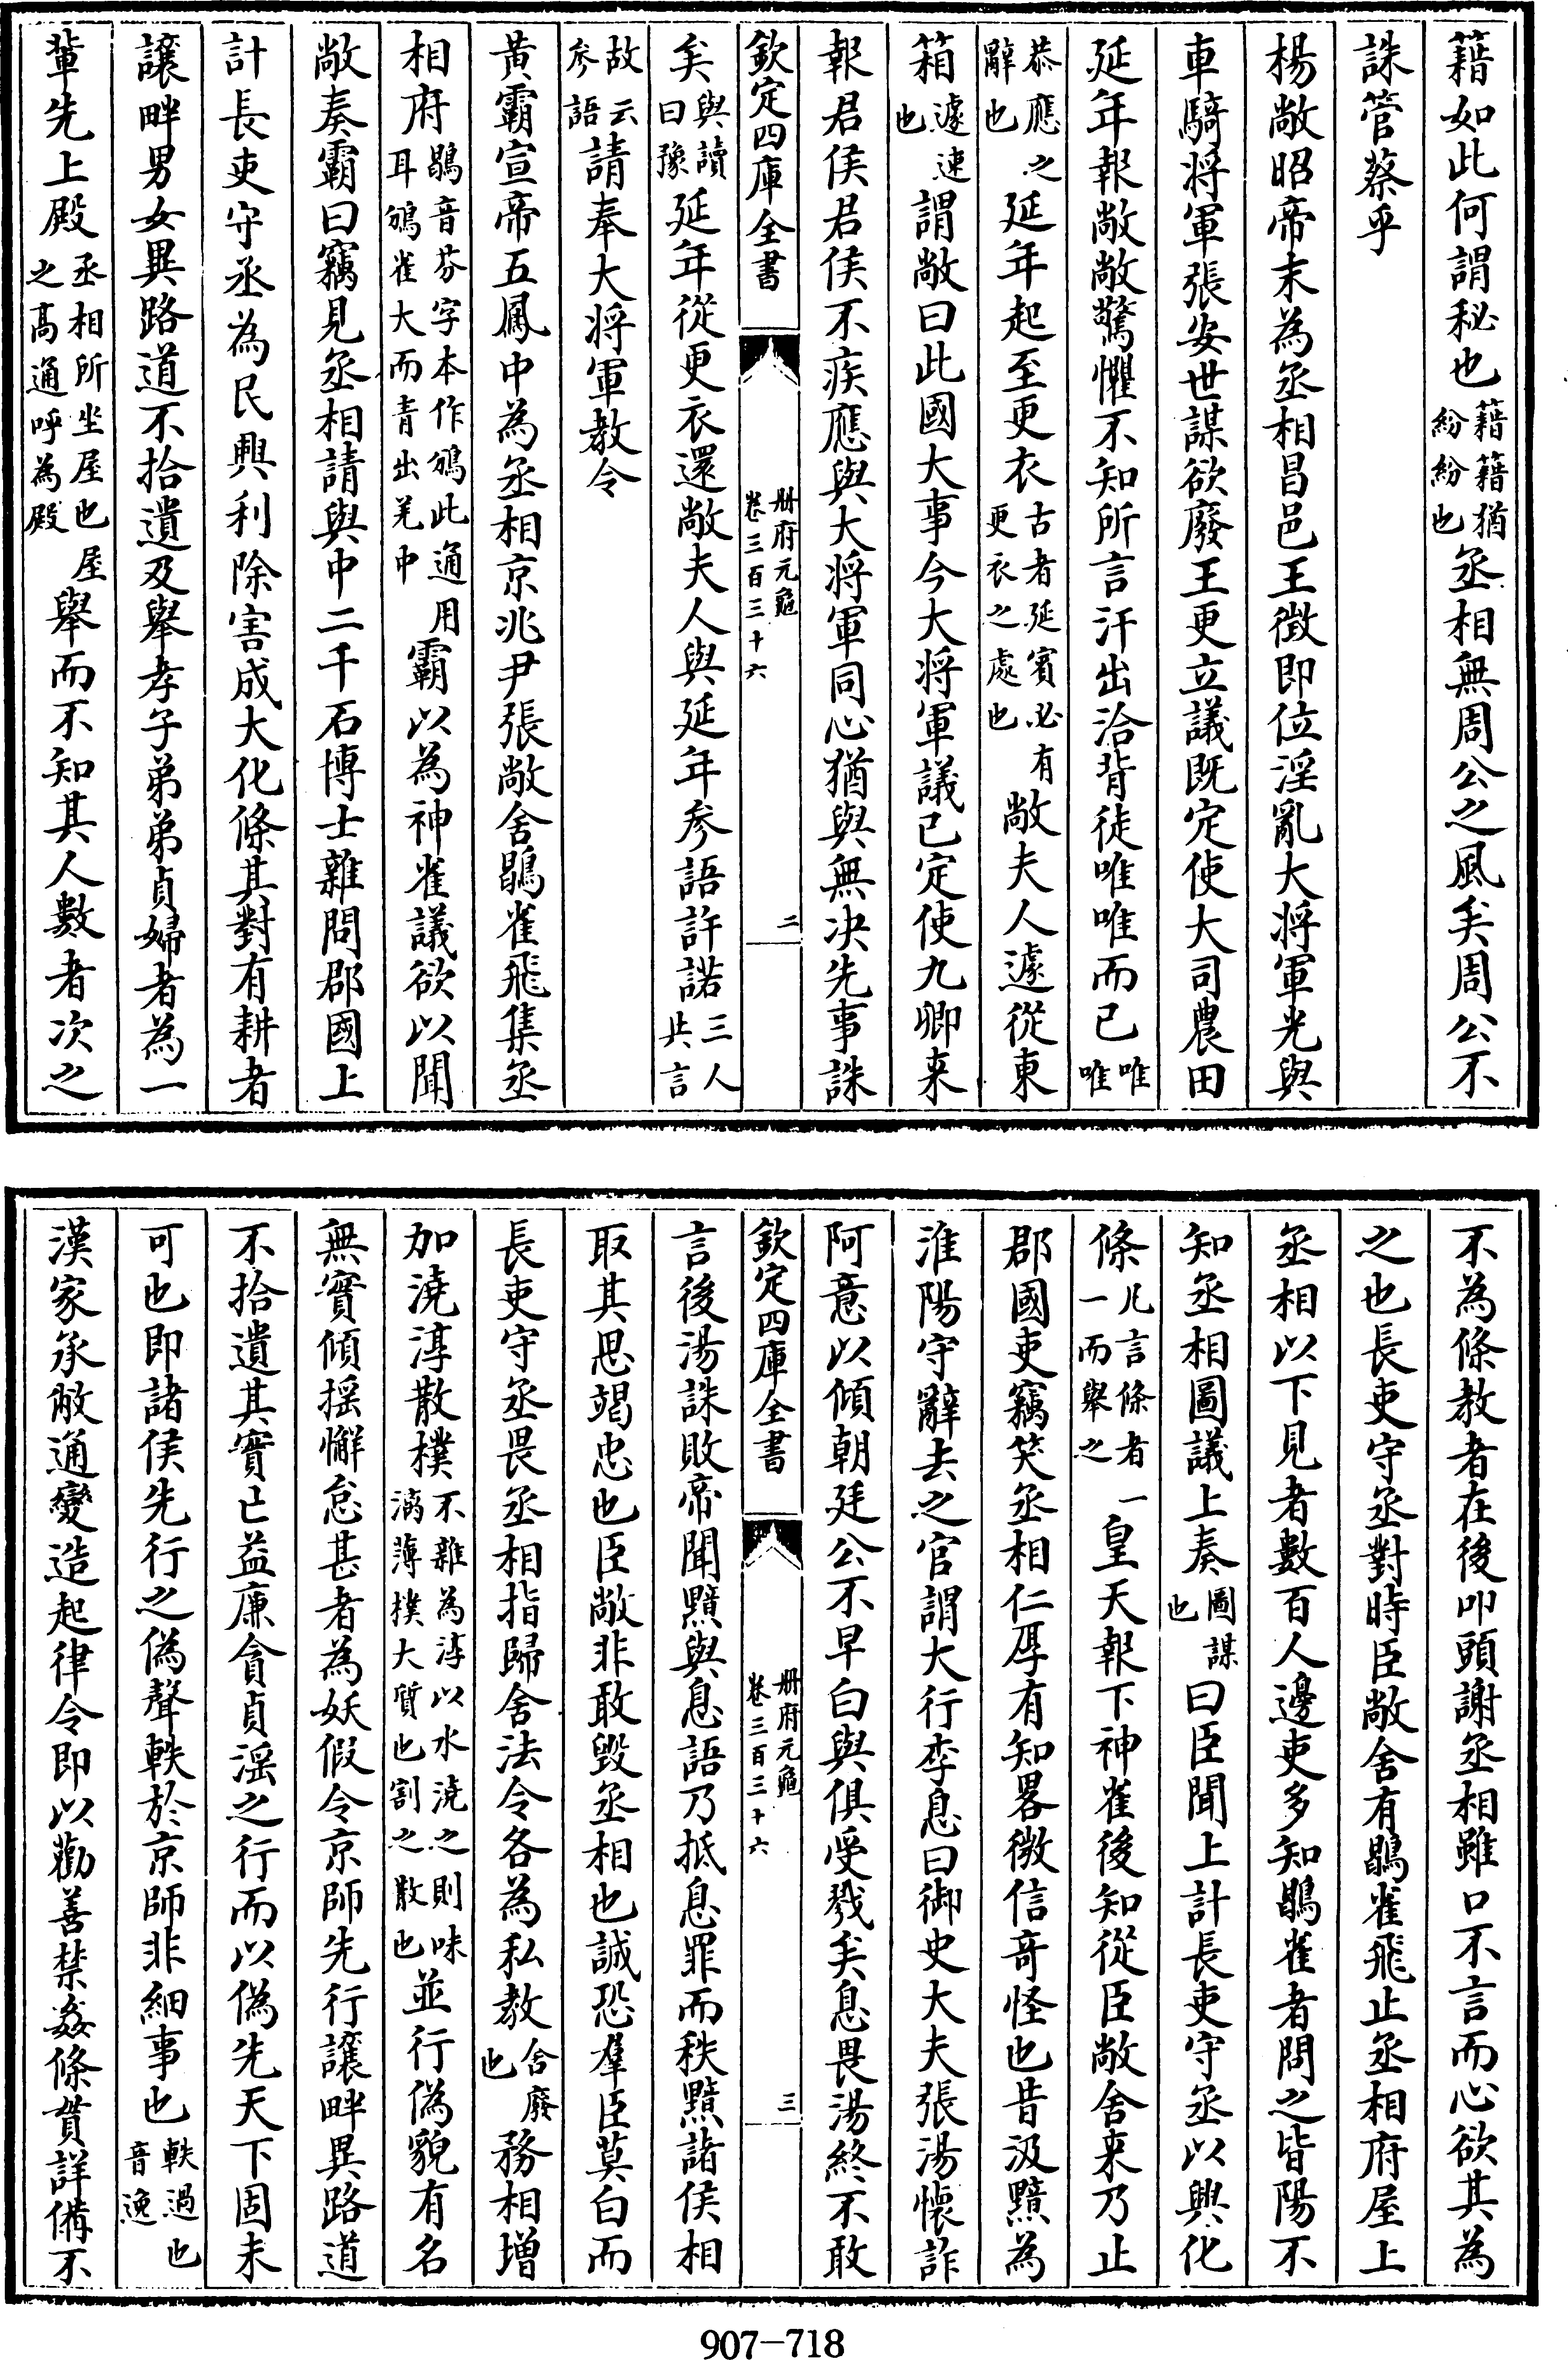 籍如此何謂秘也籍籍猶紛紛也丞相無周公之風矣周公不
誅管蔡乎
楊敞昭帝末為丞相昌邑王徵即位淫亂大將軍光與
車騎將軍張安世謀欲廢王更立議既定使大司農田
延年報敞敞驚懼不知所言汗出洽背徒唯唯而已唯唯
恭應之辭也延年起至更衣古者延賓必有更衣之處也敞夫人遽從東
箱遽速也謂敞曰此國大事今大將軍議已定使九卿来
報君侯君侯不疾應與大將軍同心猶與無决先事誅
欽定四庫全書 冊府元龜卷三百三十六 二
矣與讀曰豫延年從更衣還敞夫人與延年参語許諾三人共言
故云参語請奉大將軍教令
黃霸宣帝五鳳中為丞相京兆尹張敞舍鶡雀飛集丞
相府鶡音芬字本作鳻此通用耳鳻雀大而青出羌中霸以為神雀議欲以聞
敞奏霸曰竊見丞相請與中二千石博士雜問郡國上
計長吏守丞為民興利除害成大化條其對有耕者
讓畔男女異路道不拾遺及舉孝子弟弟貞婦者為一
輩先上殿丞相所坐屋也屋之高通呼為殿舉而不知其人數者次之
不為條教者在後叩頭謝丞相雖口不言而心欲其為
之也長吏守丞對時臣敞舍有鶡雀飛止丞相府屋上
丞相以下見者數百人邊吏多知鶡雀者問之皆陽不
知丞相圖議上奏圖謀也曰臣聞上計長吏守丞以興化
條凡言條者一一而舉之皇天報下神雀後知從臣敞舍来乃止
郡國吏竊笑丞相仁厚有知畧微信奇怪也昔汲黯為
淮陽守辭去之官謂大行李息曰御史大夫張湯懷詐
阿意以傾朝廷公不早白與俱受戮矣息畏湯終不敢
欽定四庫全書 冊府元龜卷三百三十六 三
言後湯誅敗帝聞黯與息語乃抵息罪而秩黯諸侯相
取其思竭忠也臣敞非敢毀丞相也誠恐羣臣莫白而
長吏守丞畏丞相指歸舍法令各為私教舍廢也務相增
加澆淳散樸不雜為淳以水澆之則味漓薄樸大質也割之散也並行偽貌有名
無實傾揺懈怠甚者為妖假令京師先行讓畔異路道
不拾遺其實已益廉貪貞滛之行而以偽先天下固未
可也即諸侯先行之偽聲軼於京師非細事也軼過也音逸
漢家承敝通變造起律令即以勸善禁姦條貫詳備不
907-718